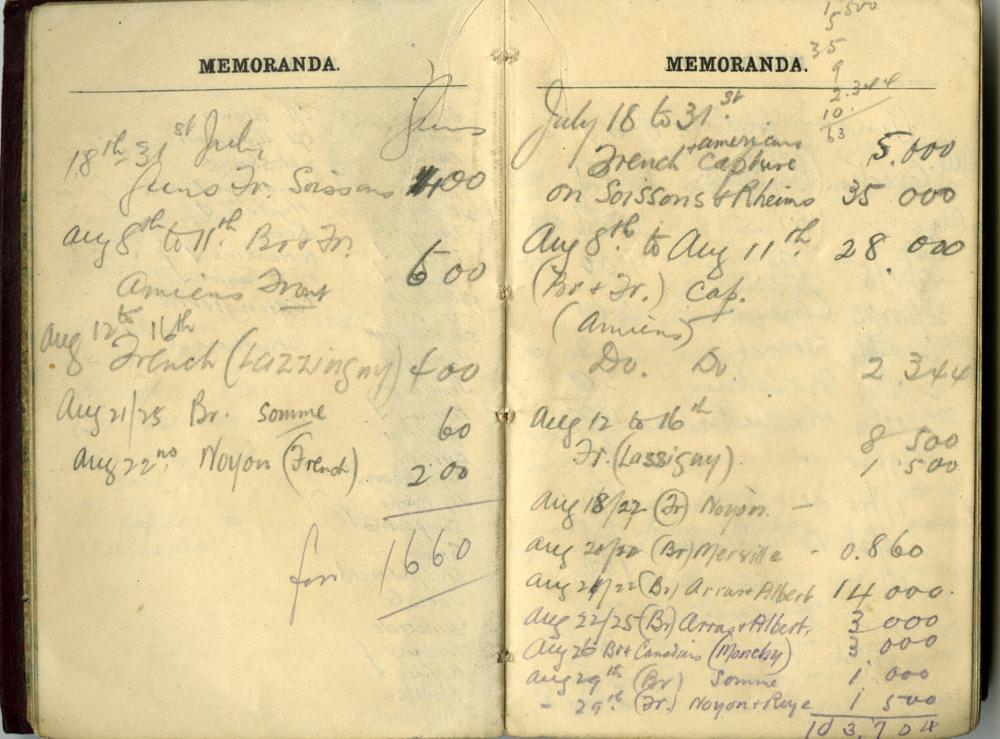 MEMORANDA.
Guns
18th-31st July
Guns Fr. Soissons 400
Aug 8th to 11th Br + Fr.
Amiens Front 600
Aug 12th to 16th
French (Lazzingny) 400
Aug 21/25 Br. Somme 60
Aug 22nd Noyon (French) 200
1660
MEMORANDA.
1500
5
35
9
2.344
10
63
July 18 to 31st
French + americans Capture 5.000
on Soissons + Rheims 35 000
Aug 8th to Aug 11th 28.000
(Br + Fr.) Cap.
(Amiens)
Do. Do 2.344
Aug 12 to 16th
8 500
Fr. (Lassigny). 1 500
Aug 18/22 (Fr) Noyon. -
Aug 20/22 (Br) Merville - 0.860
Aug 21/22 (Br) Arras + Albert 14 000.
Aug 22/25 (Br) Arras + Albert. 3 000
Aug 26 Br + Canadians (Monchy) 3 000
Aug 29th (Br) Somme 1 000
- 29th (Fr.) Noyon + Roye 1 500
103,704